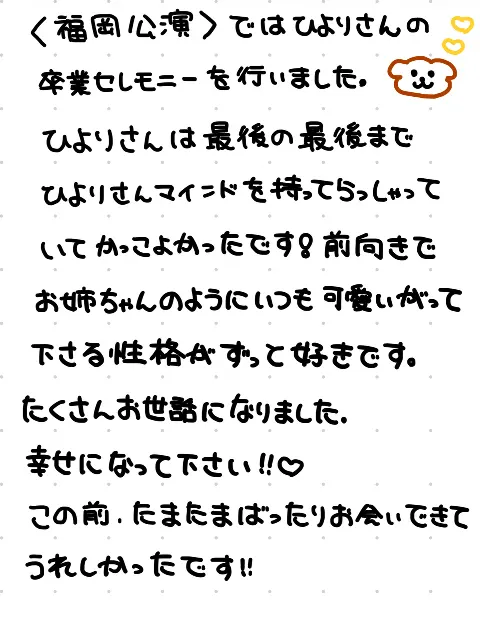 〈福岡公演〉ではひよりさんの
卒業セレモニーを行いました。
ひよりさんは最後の最後まで
ひよりさんマインドを持ってらっしゃって
いてかっこよかったです!前向きで
お姉ちゃんのようにいつも可愛いがって
下さる性格がずっと好きです。
たくさんお世話になりました.
幸せになって下さい!!♡
この前.たまたまばったりお会いできて
うれしかったです!!